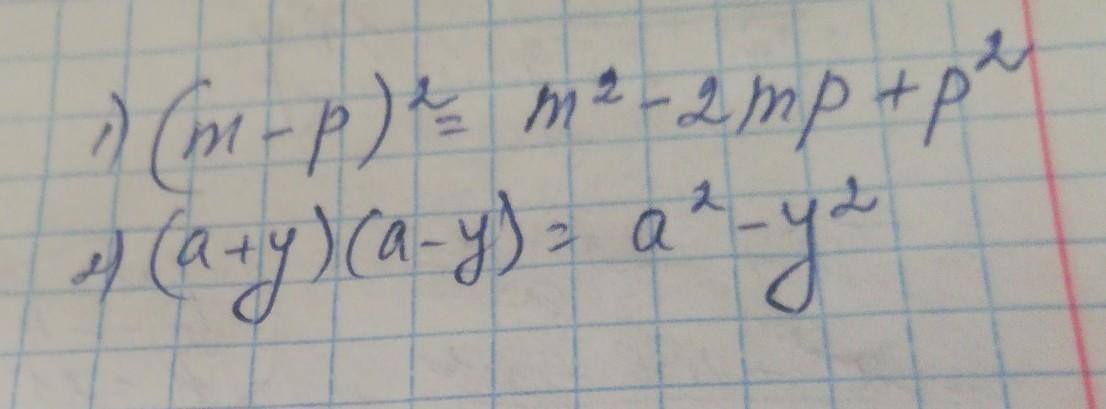 1) (m - p)² = m² - 2mp + p²
2) (a + y)(a - y) = a² - y²